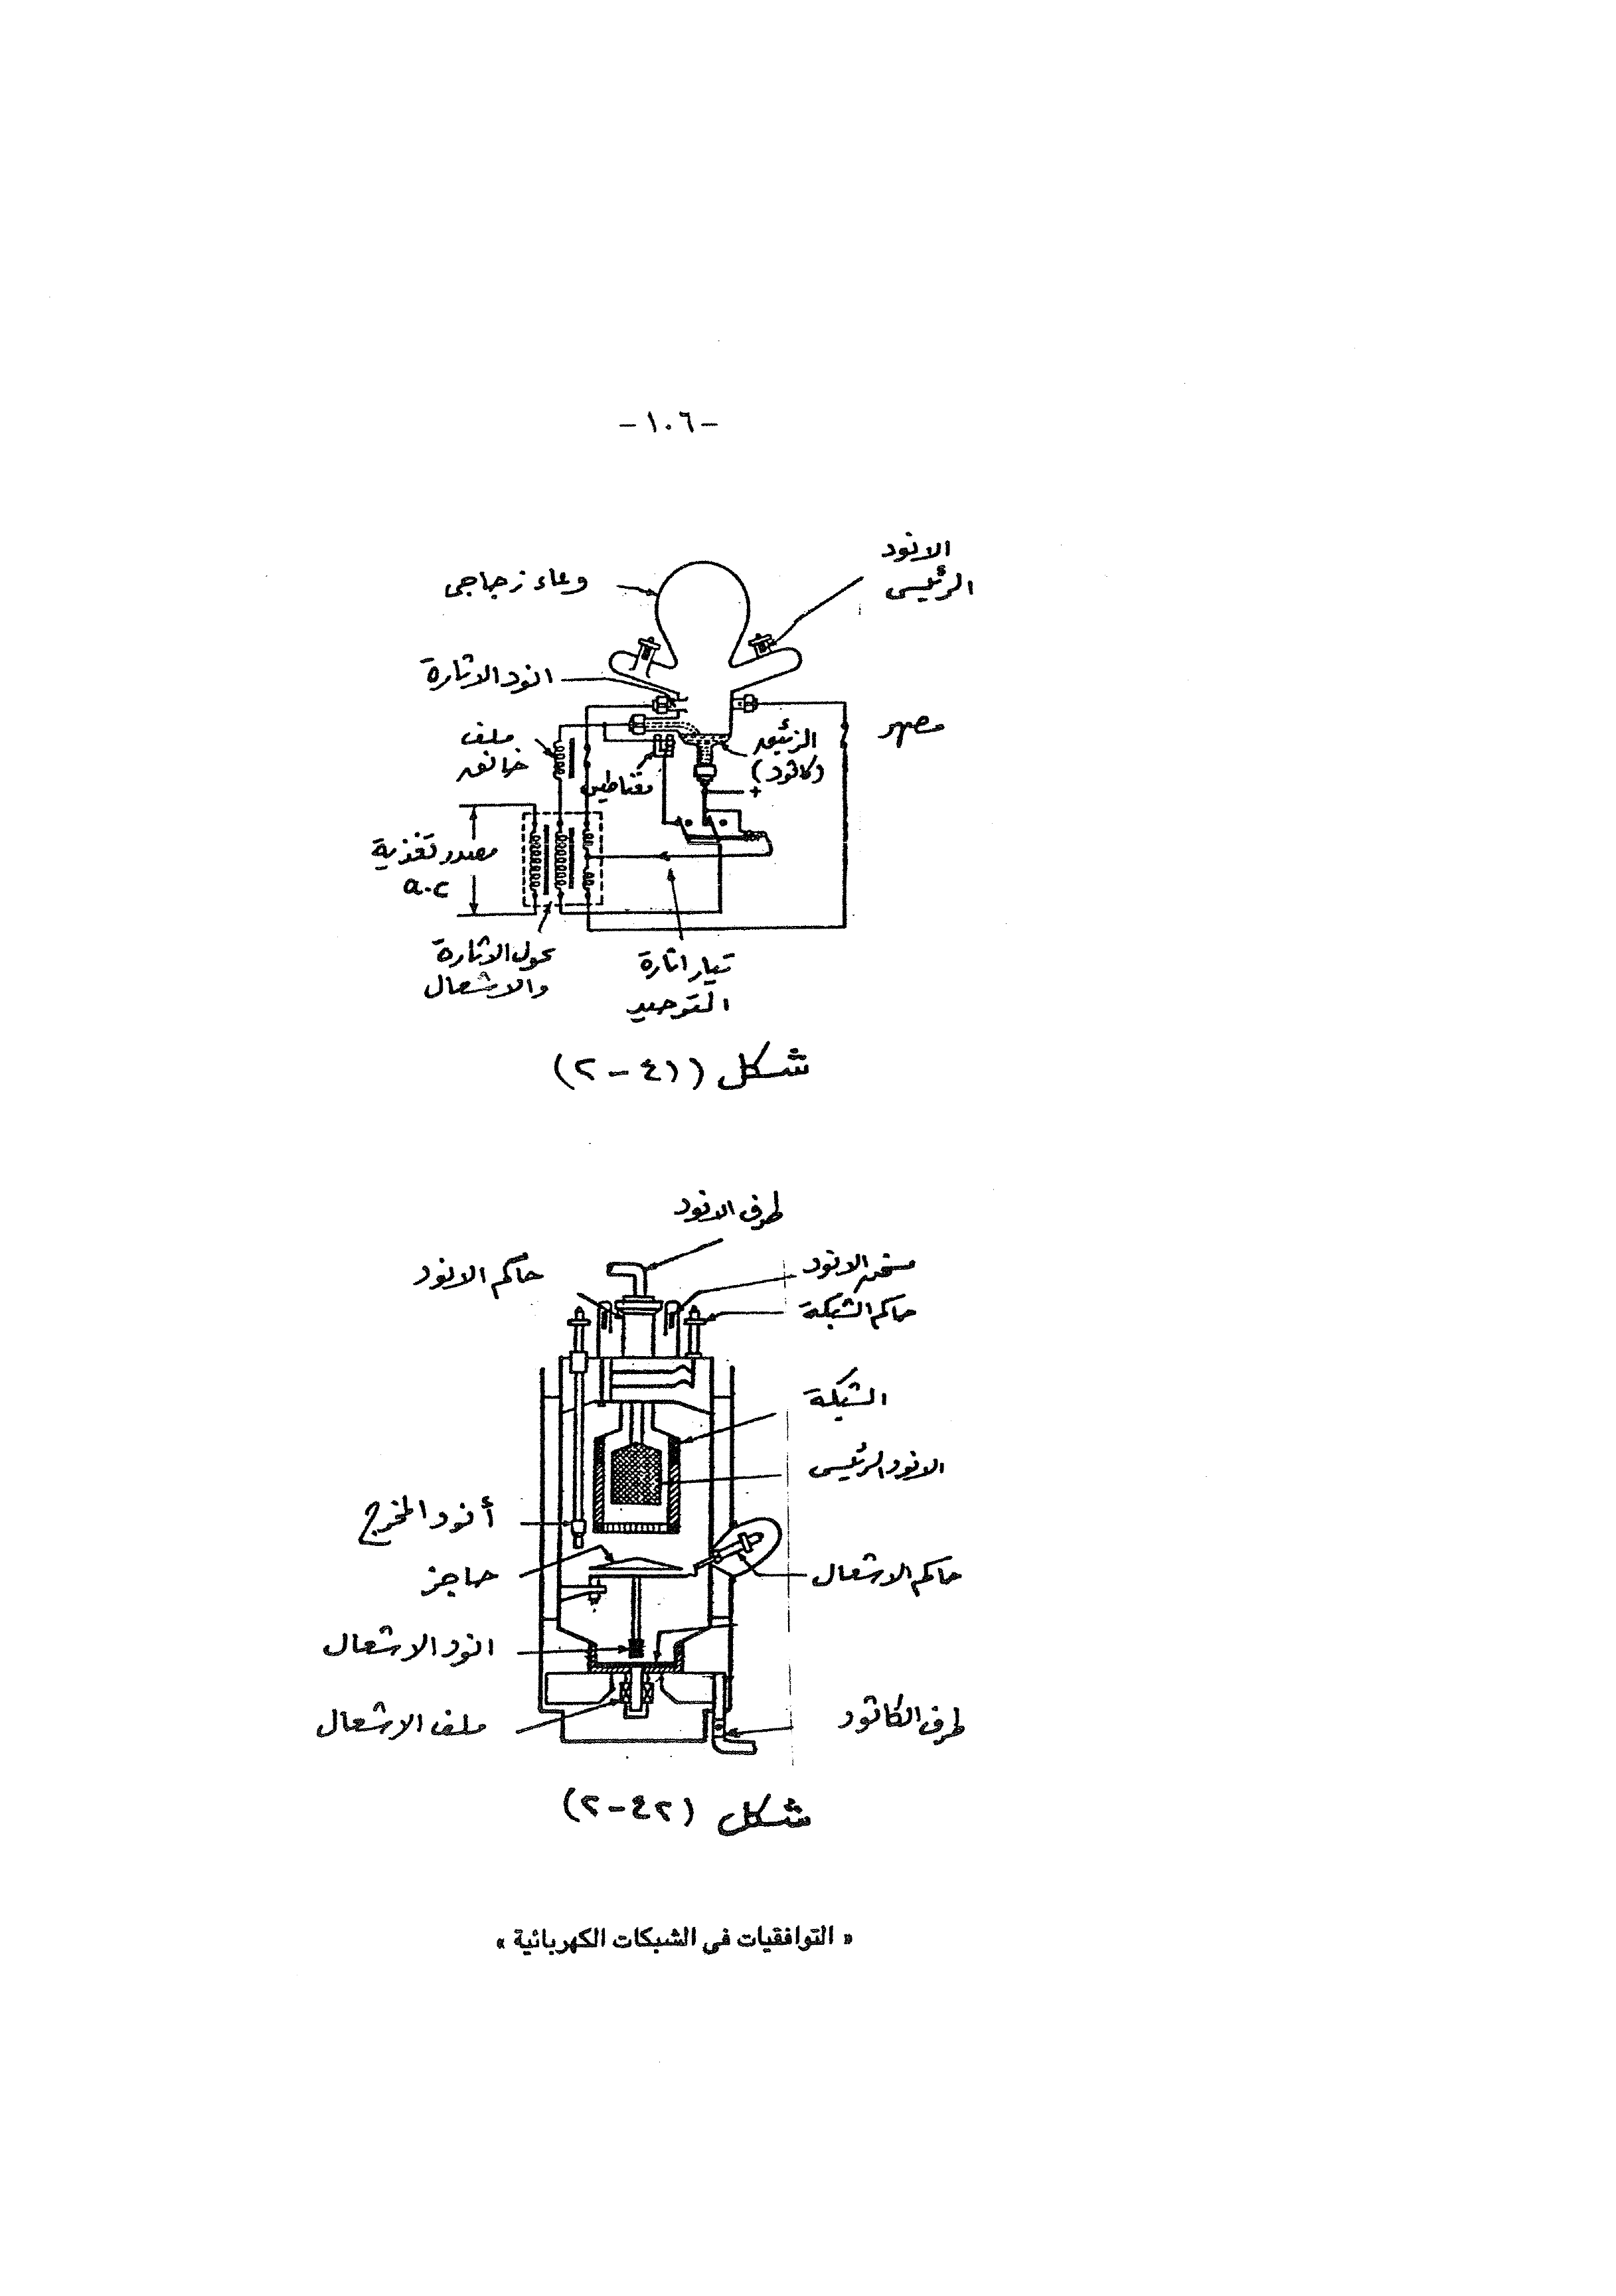 -١٠٦-
الانود
الرئيسى
وعاء زجاجى
انود الاثارة
مصهر
ملف
خانق
الزئبق
(كاثود)
مغناطيس
+
مصدر تغذية
a.c
محول الاثارة
والاشعال
تيار اثارة
التوحيد
شكل (٤١-٢)
طرف الانود
مسخن الانود
حاكم الانود
حاكم الشبكة
الشبكة
الانود الرئيسى
أنود المخرج
حاجز
حاكم الاشعال
انود الاشعال
ملف الاشعال
طرف الكاثود
شكل (٤٢-٢)
« التوافقيات فى الشبكات الكهربائية »